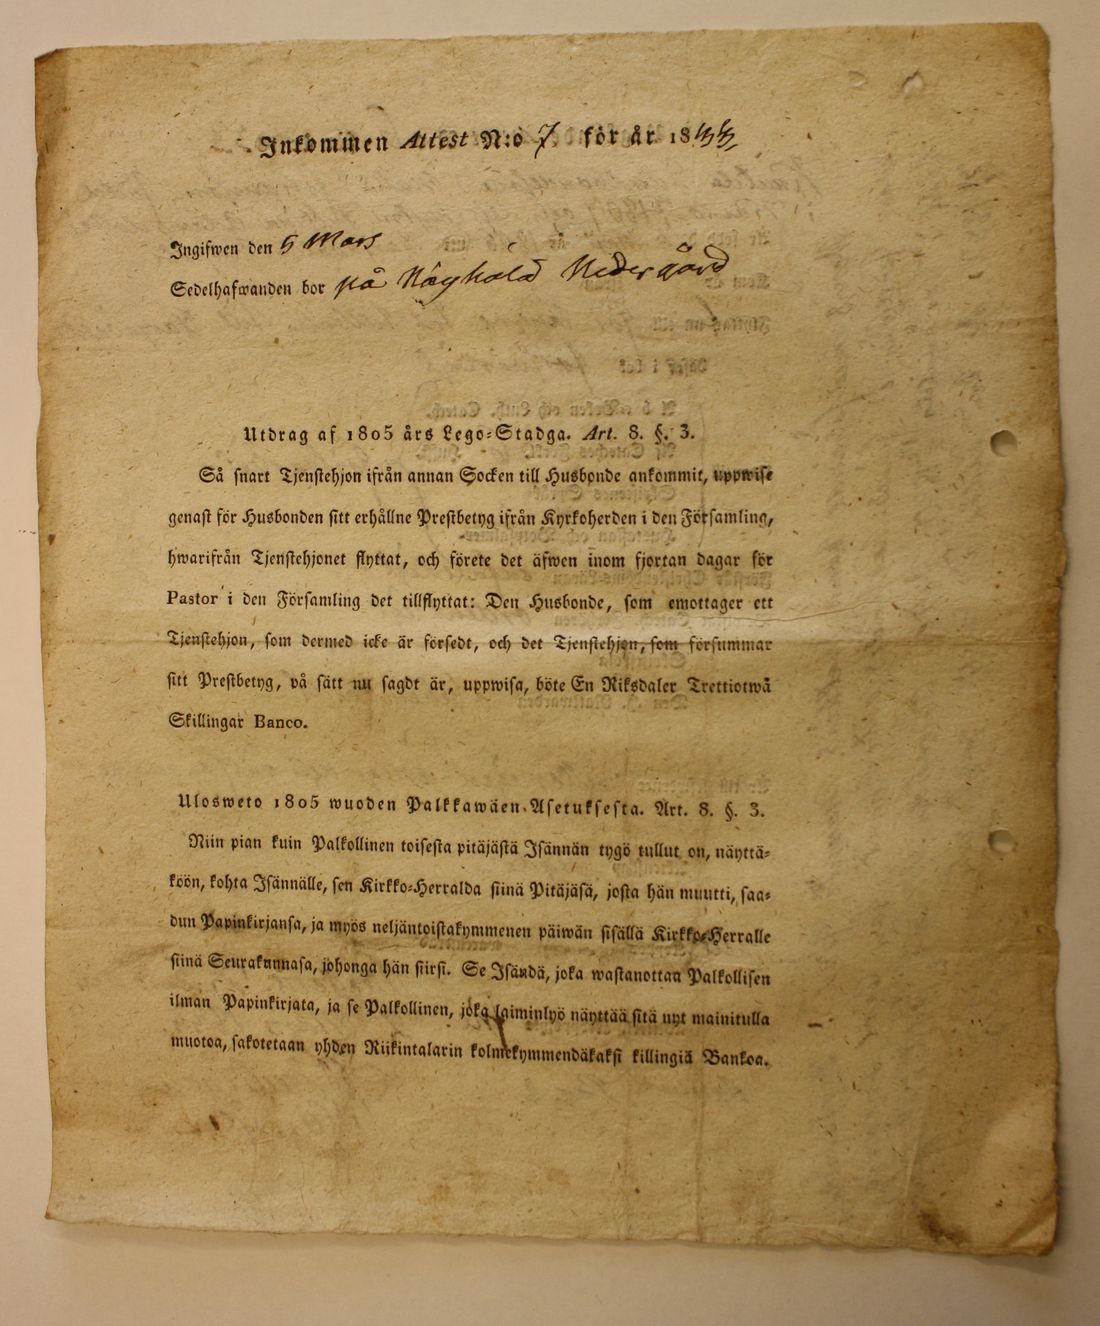 Inkommen Attest N:o 7 för år 1833
Ingifwen den 5 Mars
Sedelhafwanden bor på Höghold Nedergård
Utdrag af 1805 års Lego-Stadga. Art. 8. §. 3.
Så snart Tjenstehjon ifrån annan Socken till Husbonde ankommit, uppwise
genast för Husbonden sitt erhållne Prestbetyg ifrån Kyrkoherden i den Församling,
hwarifrån Tjenstehjonet flyttat, och förete det äfwen inom fjortan dagar för
Pastor i den Församling det tillflyttat: Den Husbonde, som emottager ett
Tjenstehjon, som dermed icke är försedt, och det Tjenstehjon, som försummar
sitt Prestbetyg, på sätt nu sagdt är, uppwisa, böte En Riksdaler Trettiotwå
Skillingar Banco.
Ulosweto 1805 wuoden Palkkawäen-Asetuksesta. Art. 8. §. 3.
Niin pian kuin Palkollinen toisesta pitäjästä Isännän tygö tullut on, näyttä-
köön, kohta Isännälle, sen Kirkko-Herralda siinä Pitäjäsä, josta hän muutti, saa-
dun Papinkirjansa, ja myös neljäntoistakymmenen päiwän sisällä Kirkko-Herralle
siinä Seurakunnasa, johonga hän siirsi. Se Isändä, joka wastanottaa Palkollisen
ilman Papinkirjata, ja se Palkollinen, joka laiminlyö näyttää sitä nyt mainitulla
muotoa, sakotetaan yhden Riikintalarin kolmekymmendäkaksi killingiä Bankoa.